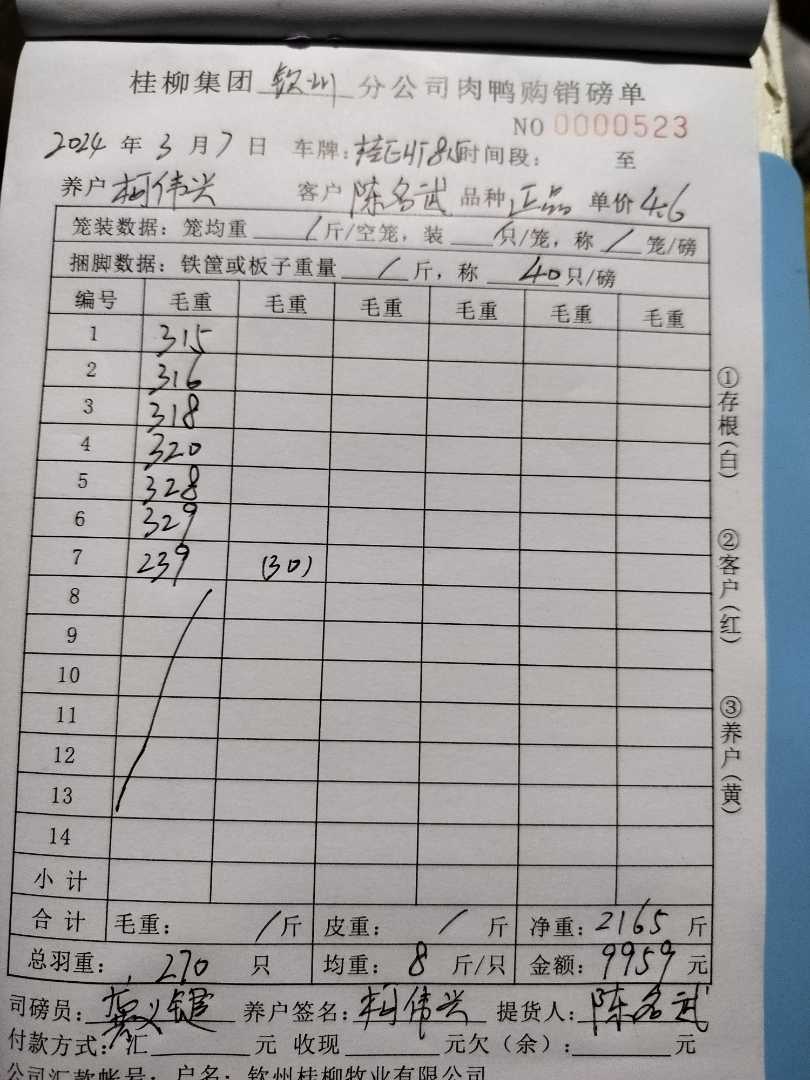 桂柳集团 钦州 分公司肉鸭购销磅单
NO 0000523
2024 年 3 月 7 日 车牌: 时间段: 至
养户 柯伟兴 客户 陈名武 品种 正品 单价 4.6
笼装数据: 笼均重 / 斤/空笼, 装 / 只/笼, 称 / 笼/磅
捆脚数据: 铁筐或板子重量 / 斤, 称 40 只/磅
编号 毛重 毛重 毛重 毛重 毛重 毛重
1 315
2 316
3 318
4 320
5 328
6 329
7 239 (30)
8
9
10
11
12
13
14
小计
合计 毛重: / 斤 皮重: / 斤 净重: 2165 斤
总羽重: 270 只 均重: 8 斤/只 金额: 9959 元
司磅员: 养户签名: 柯伟兴 提货人: 陈名武
付款方式: 汇 元 收现 元欠(余): 元
公司汇款帐号: 户名: 钦州桂柳牧业有限公司
①存根(白)
②客户(红)
③养户(黄)